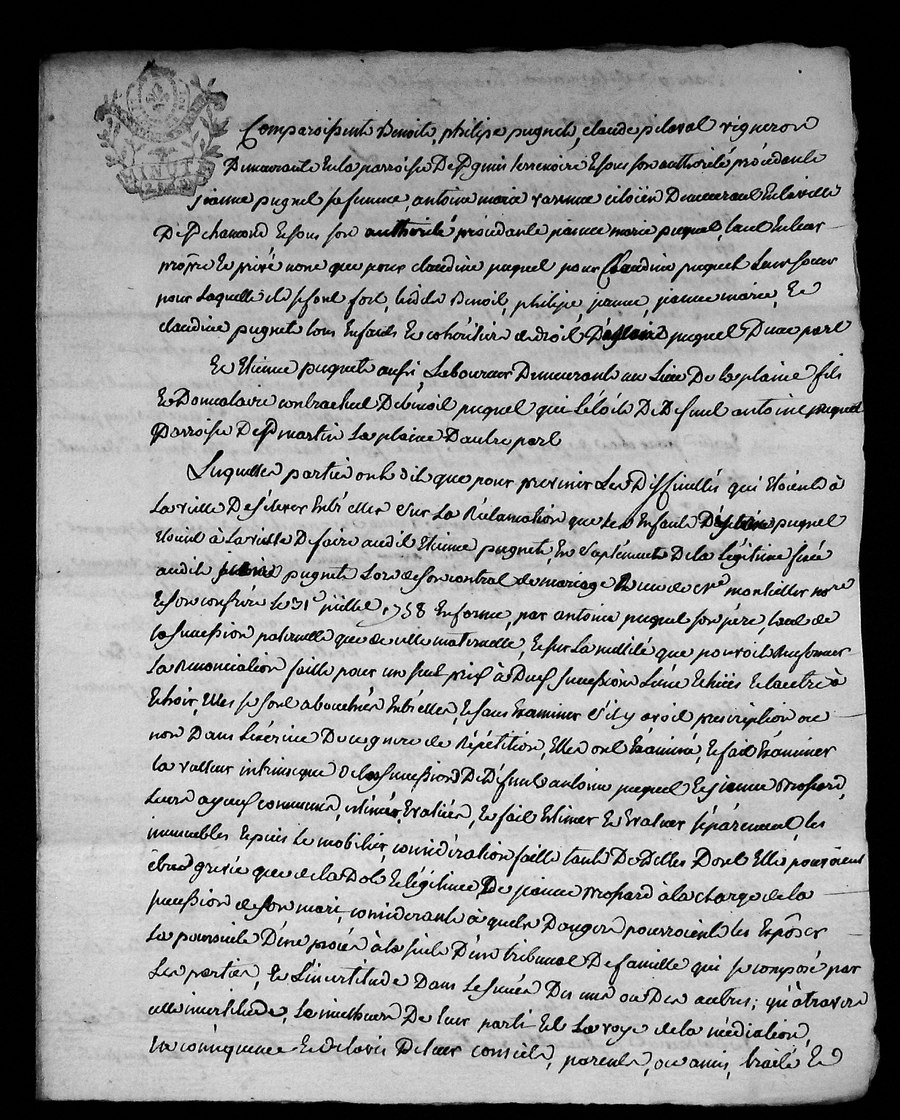 MINUT
Comparoissent Benoit, philipe pugnet, claude pilaval vigneron
Demeurants En la parroisse De St genis terrenoire Et sous son authorité procédante
jeanne pugnet sa femme antoine marie varenne citoien Demeurant En la ville
De St chamond Et sous son authorité procédante jeanne marie pugnet, tant En leur
propre Et privé nom que pour claudine pugnet pour Claudine pugnet Leur soeur
pour Laquelle ils se font fort, lesdits Benoit, philipe, jeanne, jeanne marie, Et
claudine pugnet tous Enfants Et cohéritiers de droit pugnet D'une part
Et Etienne pugnet aussi Laboureur Demeurant au Lieu De la plaine fils
Et Donnataire contractuel De benoit pugnet qui L'étoit De Defunt antoine pugnet
Parroisse De St martin La plaine D'autre part
Lesquelles parties ont dit que pour prévenir Les Difficultés qui Etoient à
La veille De s'élever Entr'elles sur La Réclamation que les Enfants pugnet
étoient à La veille De faire audit Etienne pugnet, En suplément De la Légitime fixée
audit pugnet Lors de son contrat de mariage Reçu de Me montellier nore
Et son confrère Le 31e juillet 1758 En forme, par antoine pugnet son père, tant de
la succession paternelle que de celle maternelle, Et sur La nullité que pouvoit Renfermer
La Renonciation faitte pour un seul prix à Deux successions L'une Echüe Et l'autre à
Echoir, Elles se sont abouchées Entr'elles, Et sans Examiner s'il y avoit prescription ou
non Dans L'exercice De ce genre de Répétition, Elles ont Examiné, Et fait Examiner
La valleur intrinseque De la succession De Défunt antoine pugnet Et jeanne
Leurs ayeux communs, Estimé, Evalué, Et fait Estimer Et Evaluer séparément, les
immeubles Et puis Le mobilier, considération faitte tant De Dettes Dont Elle pouvoient
être grevée que de la Dot Et légitime De jeanne à la charge de la
succession de son mari, considérants à quels Dangers pourroient les Exposer
La poursuite D'un procès à la suite D'un tribunal De famille qui se compose par
Les parties, Et L'incertitude Dans Le succès Des uns ou Des autres; qu'à travers
cette incertitude, Le meilleur De leur parti Est La voye de la médiation,
En conséquence Et De l'avis De leurs conseils, parents, ou amis, traité Et